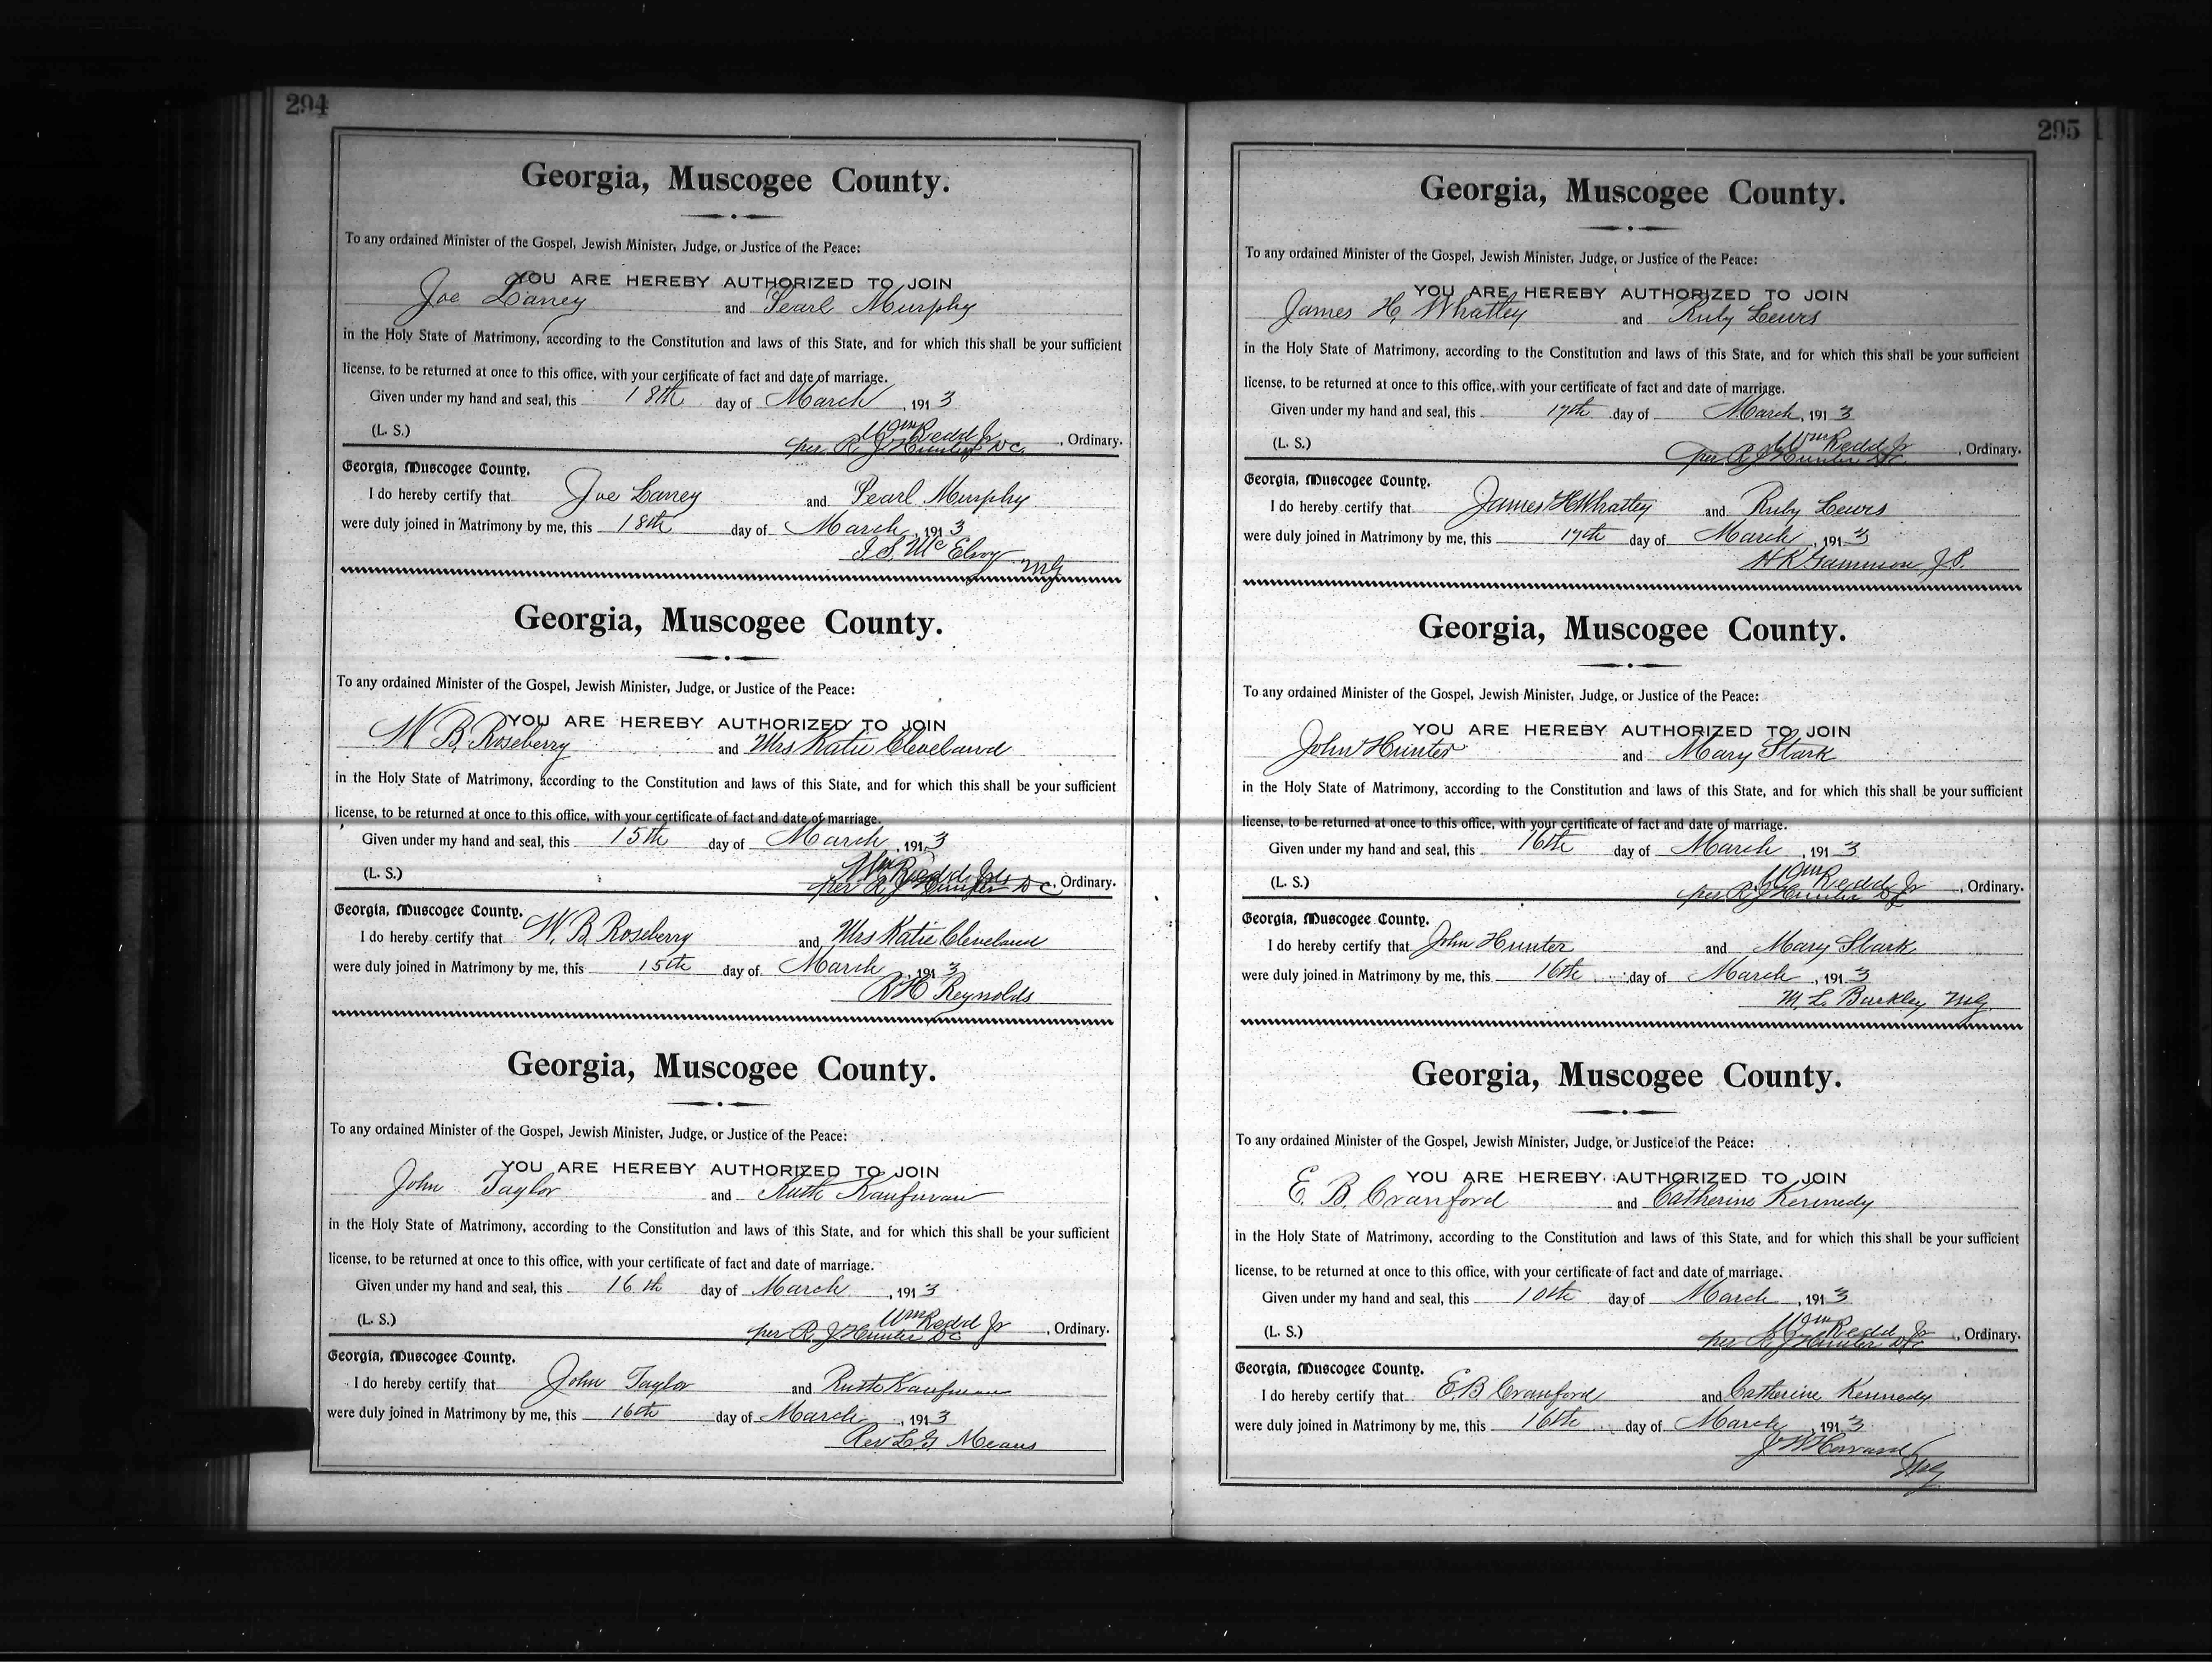 294
Georgia, Muscogee County.
To any ordained Minister of the Gospel, Jewish Minister, Judge, or Justice of the Peace:
YOU ARE HEREBY AUTHORIZED TO JOIN
Joe Laney and Pearl Murphy
in the Holy State of Matrimony, according to the Constitution and laws of this State, and for which this shall be your sufficient
license, to be returned at once to this office, with your certificate of fact and date of marriage.
Given under my hand and seal, this 18th day of March, 1913
Wm Redd Jr
(L. S.) per R. J. Hunter D C, Ordinary.
Georgia, Muscogee County.
I do hereby certify that Joe Laney and Pearl Murphy
were duly joined in Matrimony by me, this 18th day of March, 1913
I. S. McElroy MG
Georgia, Muscogee County.
To any ordained Minister of the Gospel, Jewish Minister, Judge, or Justice of the Peace:
YOU ARE HEREBY AUTHORIZED TO JOIN
W B. Roseberry and Mrs Katie Cleveland
in the Holy State of Matrimony, according to the Constitution and laws of this State, and for which this shall be your sufficient
license, to be returned at once to this office, with your certificate of fact and date of marriage.
Given under my hand and seal, this 15th day of March, 1913
Wm Redd Jr
(L. S.) per R J Hunter D C, Ordinary.
Georgia, Muscogee County.
I do hereby certify that W. B. Roseberry and Mrs Katie Cleveland
were duly joined in Matrimony by me, this 15th day of March, 1913
R H Reynolds
Georgia, Muscogee County.
To any ordained Minister of the Gospel, Jewish Minister, Judge, or Justice of the Peace:
YOU ARE HEREBY AUTHORIZED TO JOIN
John Taylor and Ruth Kaufman
in the Holy State of Matrimony, according to the Constitution and laws of this State, and for which this shall be your sufficient
license, to be returned at once to this office, with your certificate of fact and date of marriage.
Given under my hand and seal, this 16th day of March, 1913
Wm Redd Jr
(L. S.) per R. J Hunter DC, Ordinary.
Georgia, Muscogee County.
I do hereby certify that John Taylor and Ruth Kaufman
were duly joined in Matrimony by me, this 16th day of March, 1913
Rev L G Means
295
Georgia, Muscogee County.
To any ordained Minister of the Gospel, Jewish Minister, Judge, or Justice of the Peace:
YOU ARE HEREBY AUTHORIZED TO JOIN
James H. Whatley and Ruby Lewis
in the Holy State of Matrimony, according to the Constitution and laws of this State, and for which this shall be your sufficient
license, to be returned at once to this office, with your certificate of fact and date of marriage.
Given under my hand and seal, this 17th day of March, 1913
Wm Redd Jr
(L. S.) per R J Hunter DC, Ordinary.
Georgia, Muscogee County.
I do hereby certify that James H Whatley and Ruby Lewis
were duly joined in Matrimony by me, this 17th day of March, 1913
H R Gammon J. P.
Georgia, Muscogee County.
To any ordained Minister of the Gospel, Jewish Minister, Judge, or Justice of the Peace:
YOU ARE HEREBY AUTHORIZED TO JOIN
John Hunter and Mary Stark
in the Holy State of Matrimony, according to the Constitution and laws of this State, and for which this shall be your sufficient
license, to be returned at once to this office, with your certificate of fact and date of marriage.
Given under my hand and seal, this 16th day of March, 1913
Wm Redd Jr
(L. S.) per R J Hunter DC, Ordinary.
Georgia, Muscogee County.
I do hereby certify that John Hunter and Mary Stark
were duly joined in Matrimony by me, this 16th day of March, 1913
M. L. Burkley MG
Georgia, Muscogee County.
To any ordained Minister of the Gospel, Jewish Minister, Judge, or Justice of the Peace:
YOU ARE HEREBY AUTHORIZED TO JOIN
E. B. Cranford and Catherine Kennedy
in the Holy State of Matrimony, according to the Constitution and laws of this State, and for which this shall be your sufficient
license, to be returned at once to this office, with your certificate of fact and date of marriage.
Given under my hand and seal, this 10th day of March, 1913
Wm Redd Jr
(L. S.) per R J Hunter DC, Ordinary.
Georgia, Muscogee County.
I do hereby certify that E. B Cranford and Catherine Kennedy
were duly joined in Matrimony by me, this 16th day of March, 1913
J W Howard
MG